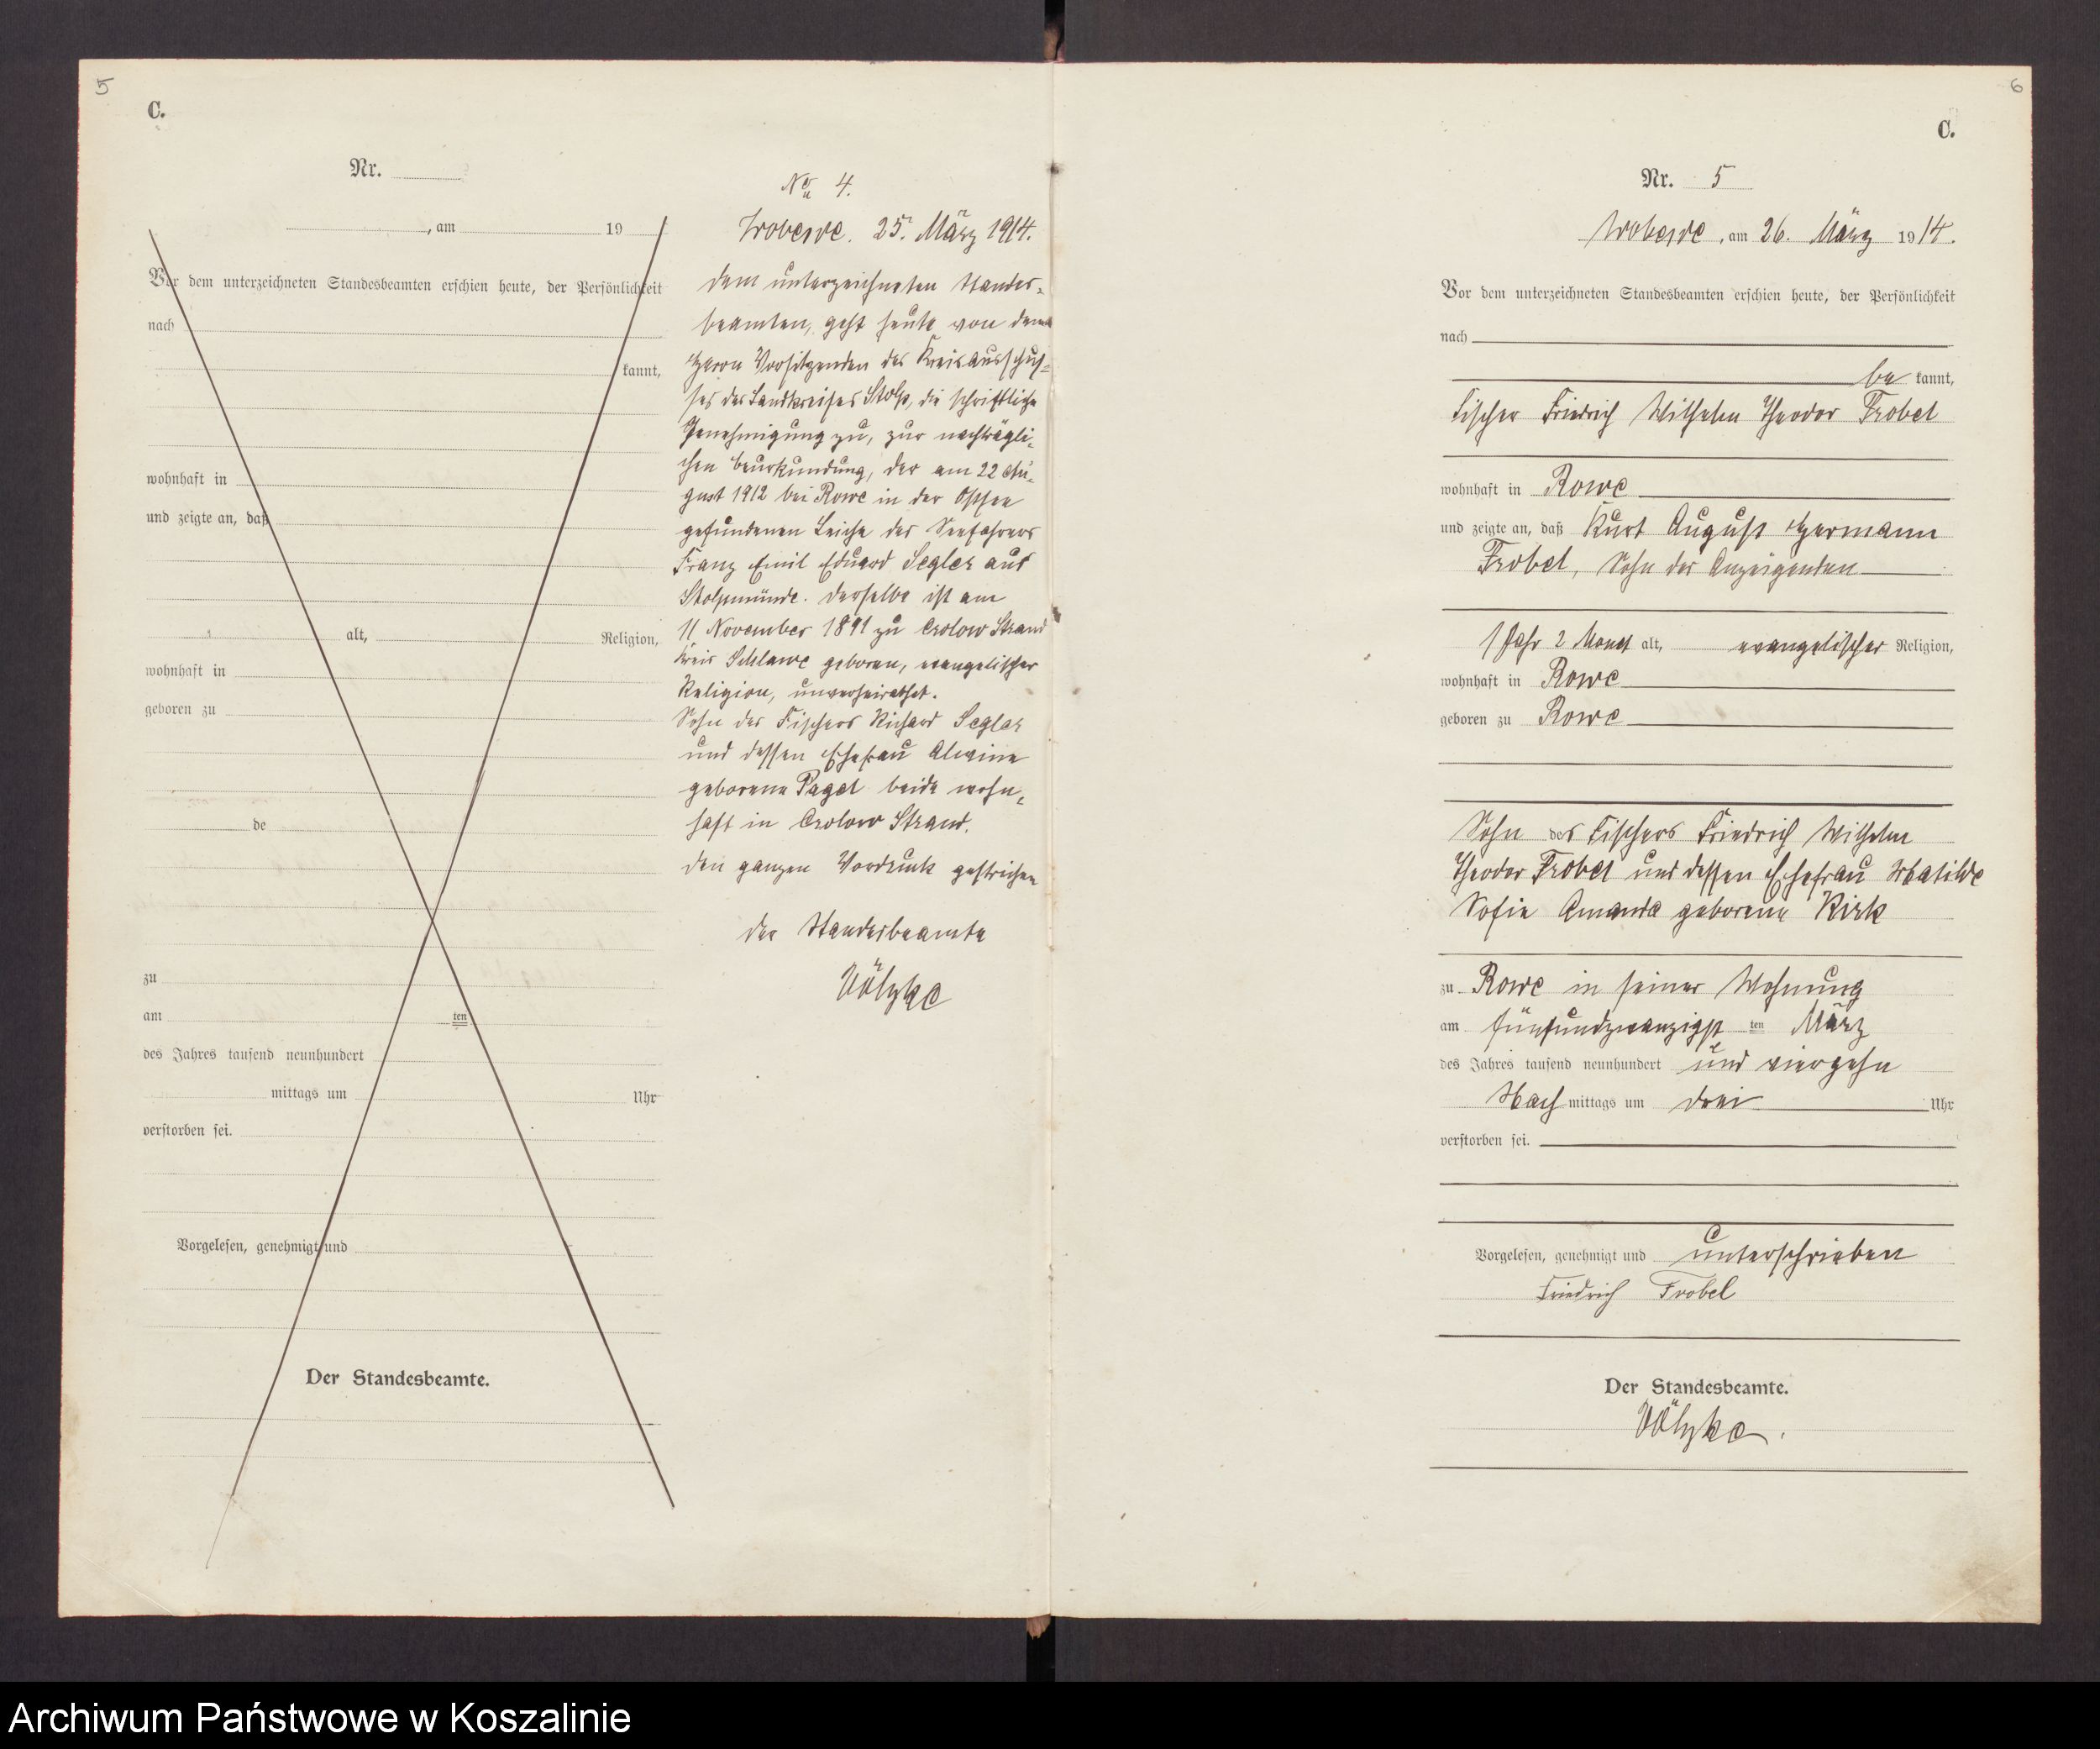 5
C.
Nr.
, am 19
Vor dem unterzeichneten Standesbeamten erschien heute, der Persönlichkeit
nach
kannt,
wohnhaft in
und zeigte an, daß
alt, Religion,
wohnhaft in
geboren zu
de
zu
am ten
des Jahres tausend neunhundert
mittags um Uhr
verstorben sei.
Vorgelesen, genehmigt und
Der Standesbeamte.
No 4.
Wobesde. 25. März 1914.
Dem unterzeichneten Standes-
beamten, geht heute von dem
Herrn Vorsitzenden des Kreisausschus-
ses des Landkreises Stolp, die schriftliche
Genehmigung zu, zur nachträgli-
chen Beurkundung, der am 22 Au-
gust 1912 bei Rowe in der Ostsee
gefundenen Leiche des Seefahrers
Franz Emil Eduard Segler aus
Stolpmünde. Derselbe ist am
11 November 1891 zu Crolow Strand
Kreis Schlawe geboren, evangelischer
Religion, unverheirathet.
Sohn des Fischers Richard Segler
und dessen Ehefrau Alwine
geborene Pagel beide wohn-
haft in Crolow Strand.
Den ganzen Vordruck gestrichen
Der Standesbeamte
Völzke
6
C.
Nr. 5
Wobesde, am 26. März 1914.
Vor dem unterzeichneten Standesbeamten erschien heute, der Persönlichkeit
nach
be kannt,
Fischer Friedrich Wilhelm Theodor Frobel
wohnhaft in Rowe
und zeigte an, daß Kurt August Hermann
Frobel, Sohn des Anzeigenden
1 Jahr 2 Monat alt, evangelischer Religion,
wohnhaft in Rowe
geboren zu Rowe
Sohn des Fischers Friedrich Wilhelm
Theodor Frobel und dessen Ehefrau Matilde
Sofie Amanda geborene Kirk
zu Rowe in seiner Wohnung
am fünfundzwanzigst ten März
des Jahres tausend neunhundert und vierzehn
Nach mittags um drei Uhr
verstorben sei.
Vorgelesen, genehmigt und unterschrieben
Friedrich Frobel
Der Standesbeamte.
Völzke.
Archiwum Państwowe w Koszalinie